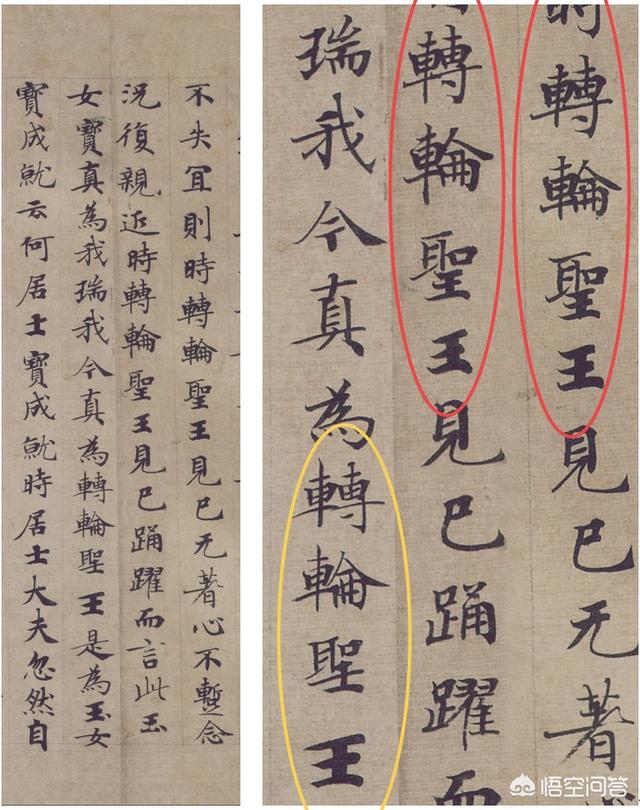 不失冝則時轉輪聖王見已无著心不蹔念
況復親近時轉輪聖王見已踊躍而言此玉
女寶真為我瑞我今真為轉輪聖王是為玉女
寶成就云何居士寶成就時居士大夫忽然自
時轉輪聖王見已无著
時轉輪聖王見已踊躍而
瑞我今真為轉輪聖王
悟空问答